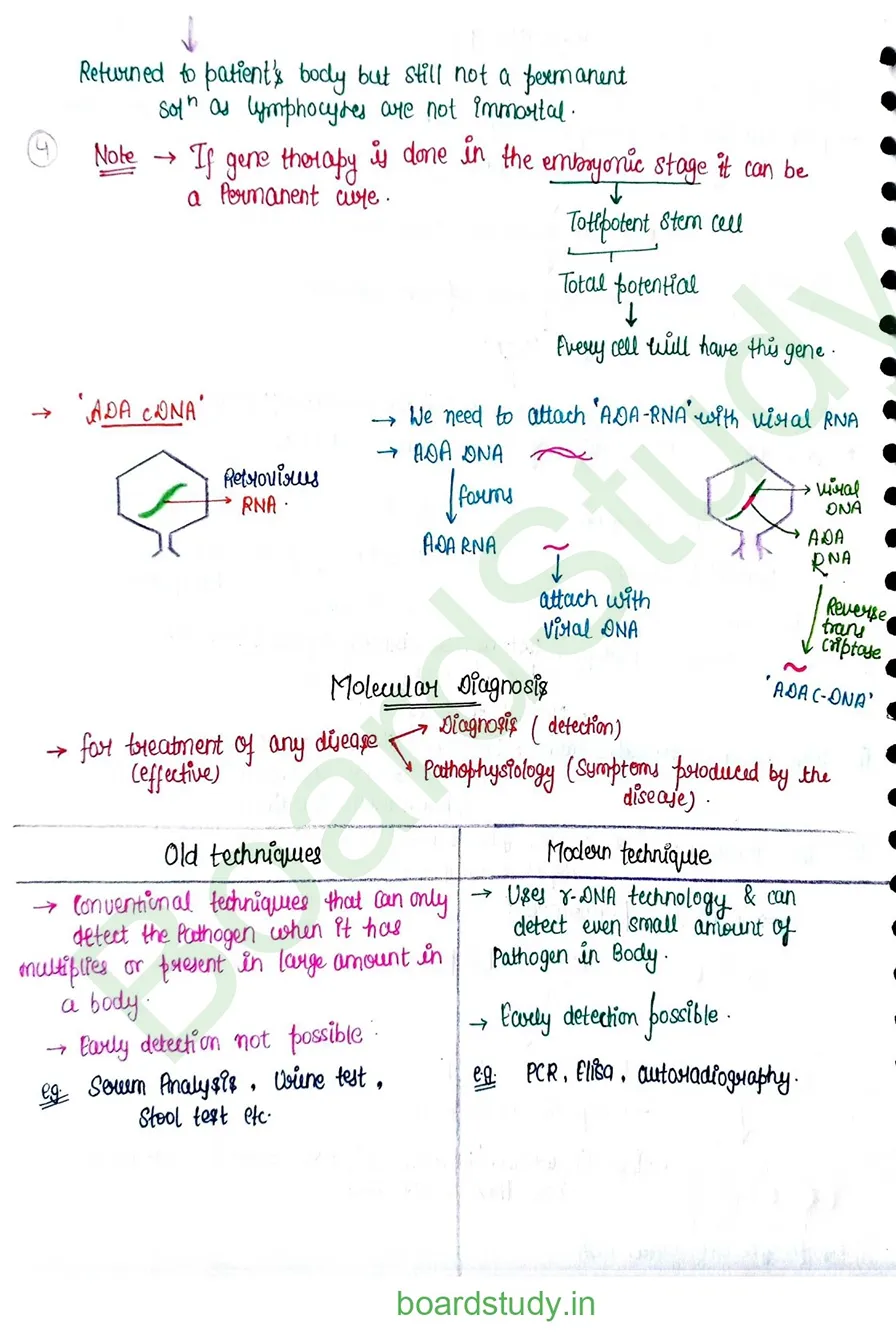 Returned to patient's body but still not a permanent
solⁿ as lymphocytes are not immortal.
4
Note → If gene therapy is done in the embryonic stage it can be
a Permanent cure.
↓
Totipotent stem cell
Total potential
↓
Every cell will have this gene.
→ 'ADA cDNA'
Retrovirus
RNA.
→ We need to attach 'ADA-RNA' with viral RNA
→ ADA DNA
forms
ADA RNA
attach with
Viral DNA
Viral
DNA
ADA
RNA
Reverse
trans
criptase
'ADA C-DNA'
Molecular Diagnosis
→ for treatment of any disease
(effective)
Diagnosis (detection)
Pathophysiology (symptoms produced by the
disease).
Old techniques
→ Conventional techniques that can only
detect the Pathogen when it has
multiplies or present in large amount in
a body.
→ Early detection not possible
eg. Serum Analysis, Urine test,
Stool test etc.
Modern technique
→ Uses r-DNA technology & can
detect even small amount of
Pathogen in Body.
→ Early detection possible.
e.g. PCR, Elisa, autoradiography.
BoardStudy
boardstudy.in